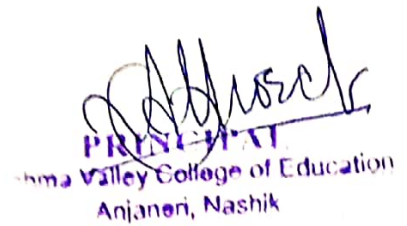 PRINCIPAL
hma Valley College of Education
Anjaneri, Nashik